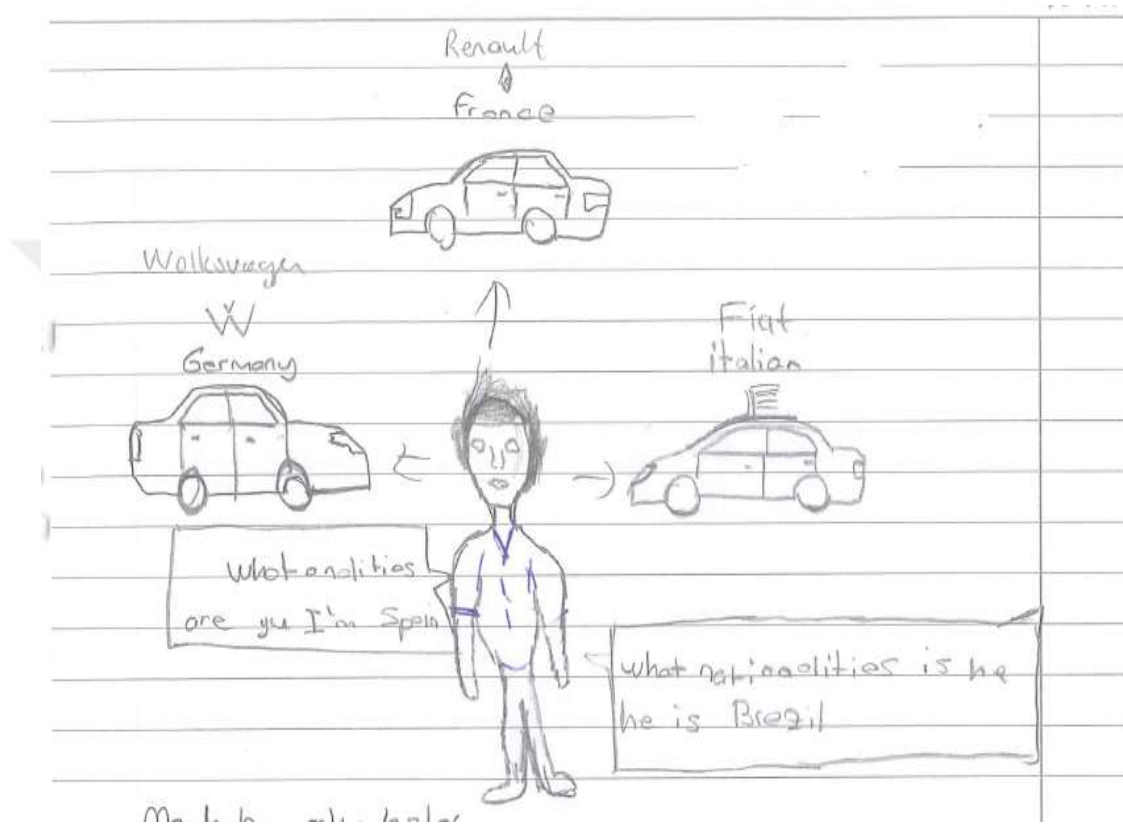 Renault
France
Wolksvagen
W
Germany
Fiat
italian
What onalities
are yu I'm Spein
what nationalities is he
he is Brezil